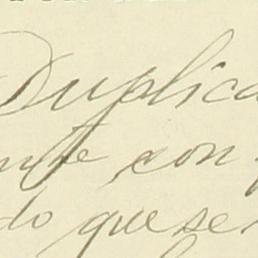 Duplica
nte con
do que se